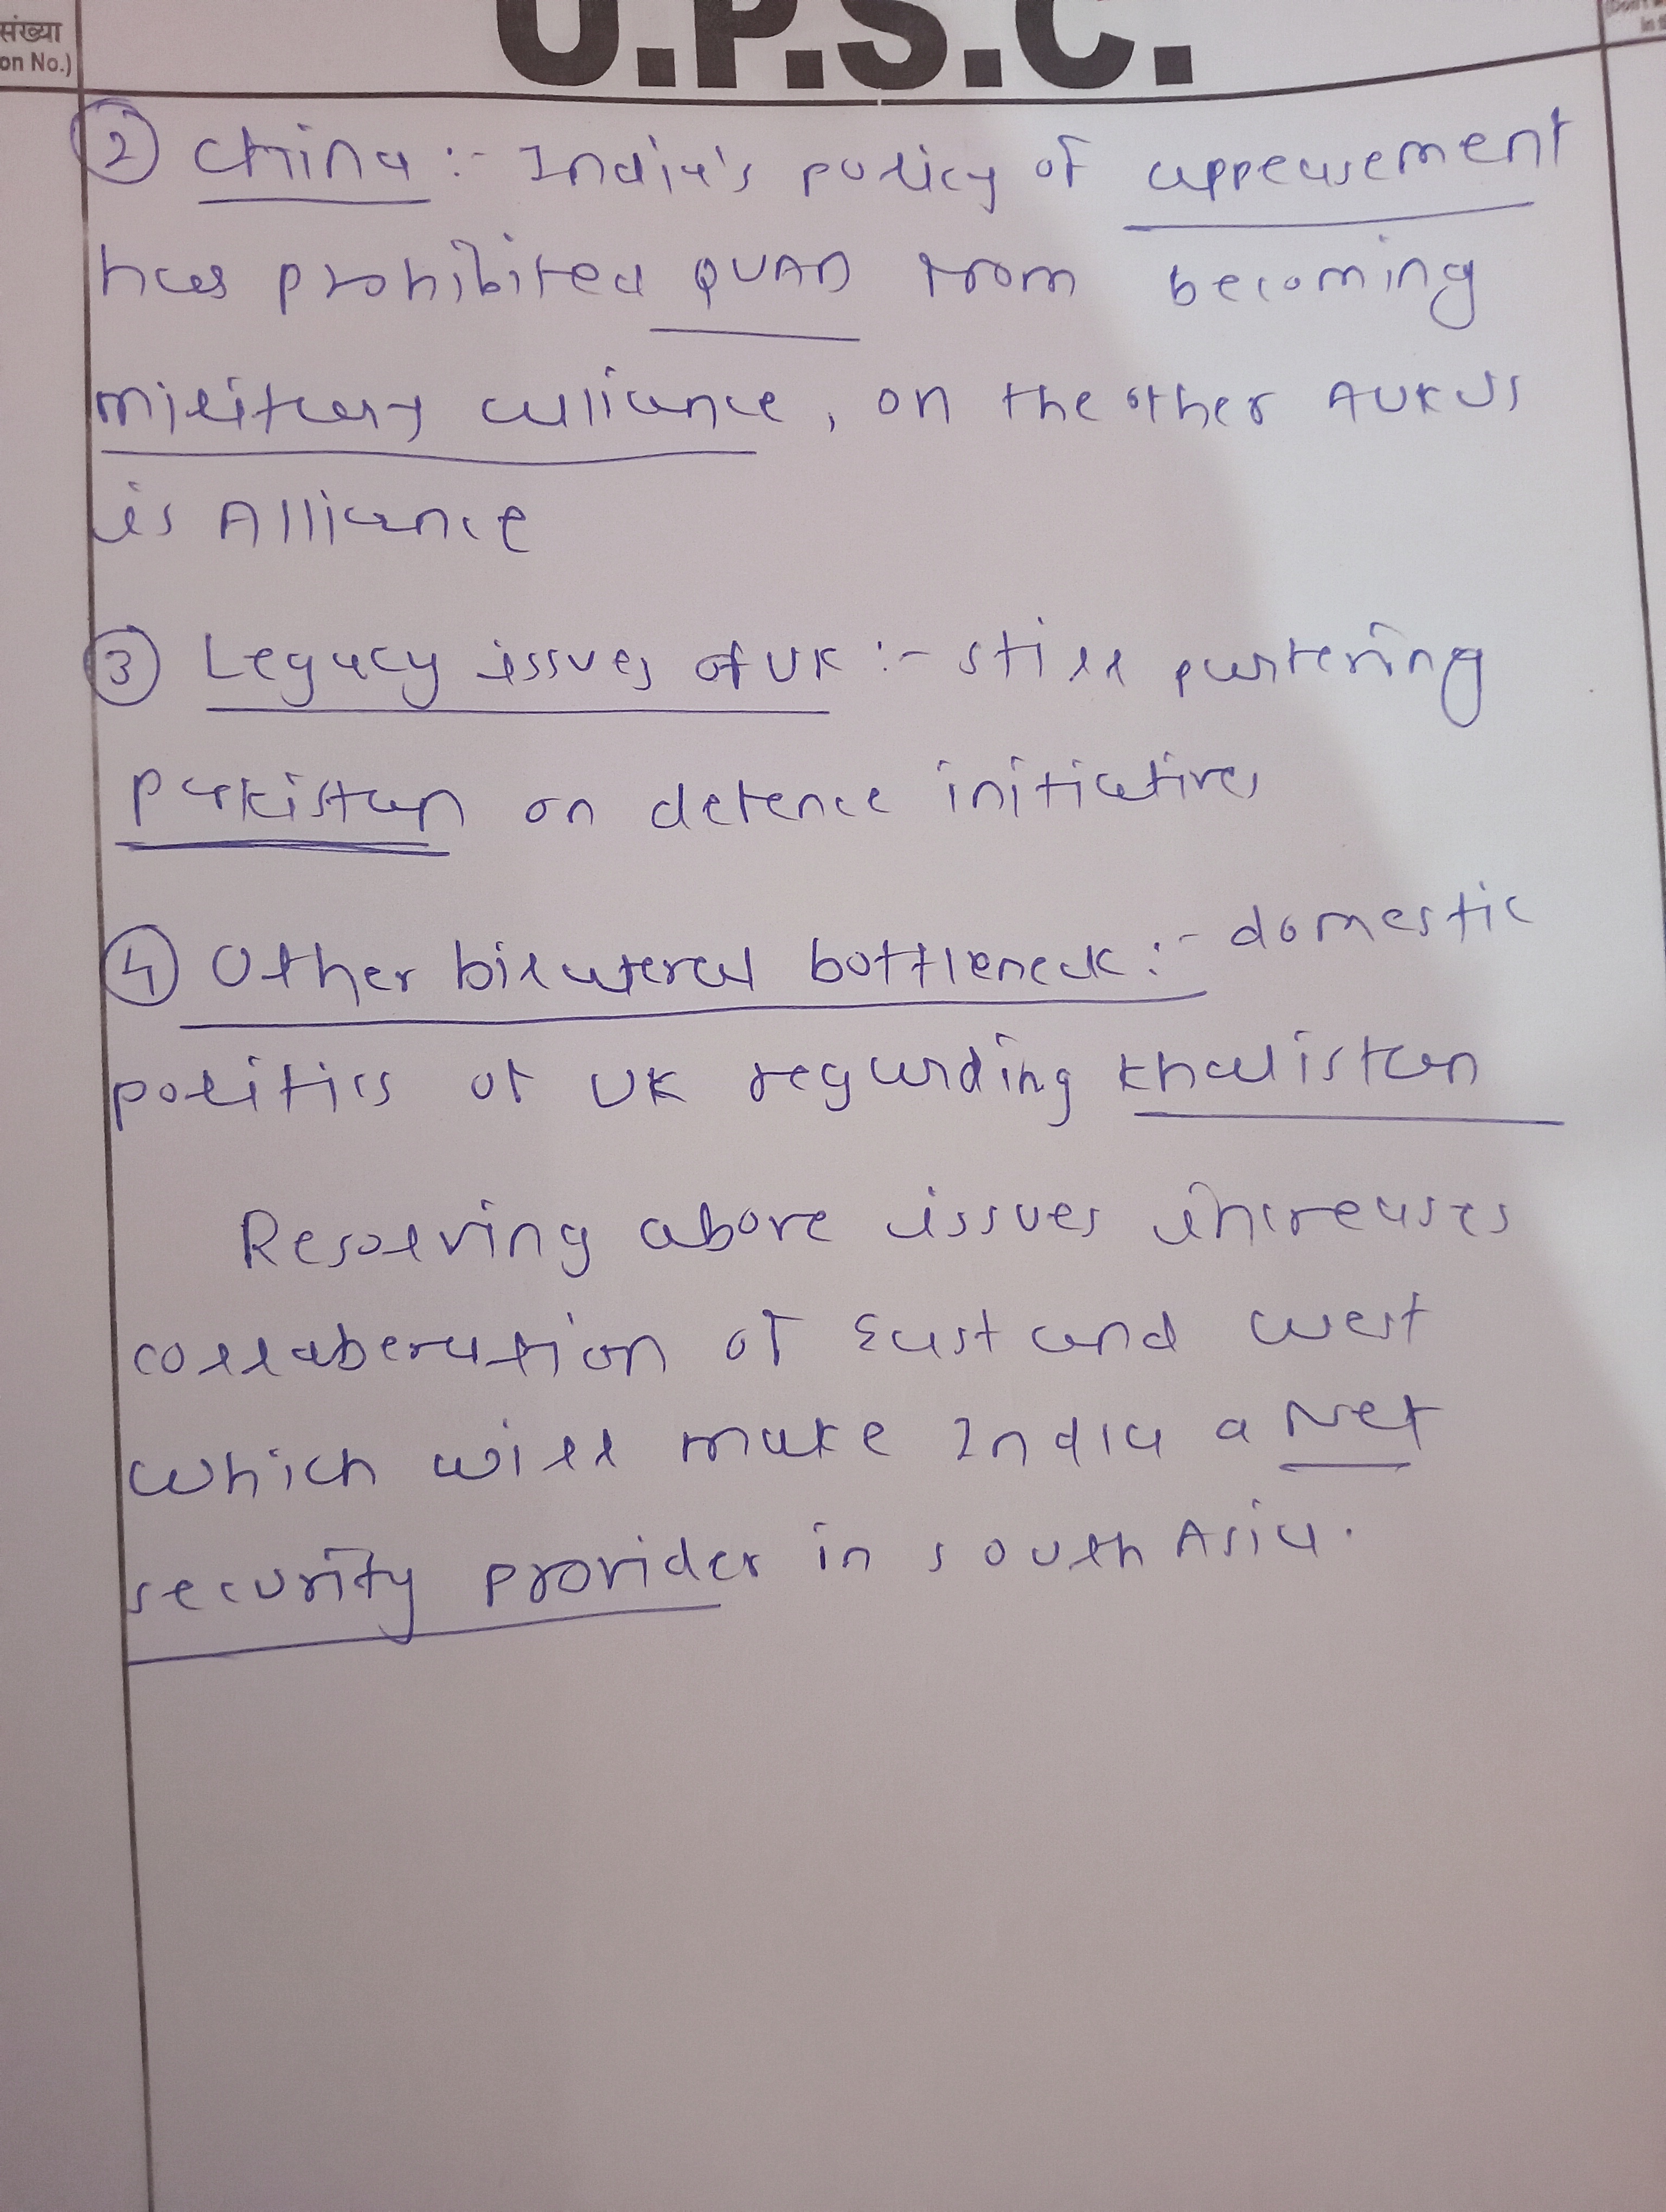 संख्या
on No.)
U.P.S.C.
② China :- India's policy of appeasement
has prohibited QUAD from becoming
military alliance, on the other AUKUS
is Alliance
③ Legacy issues of UK :- still partering
Pakistan on defence initiatives
④ Other bilateral bottleneck :- domestic
politics of UK regarding Khalistan
Resolving above issues increases
collaberation of East and west
which will make India a Net
security provider in south Asia.